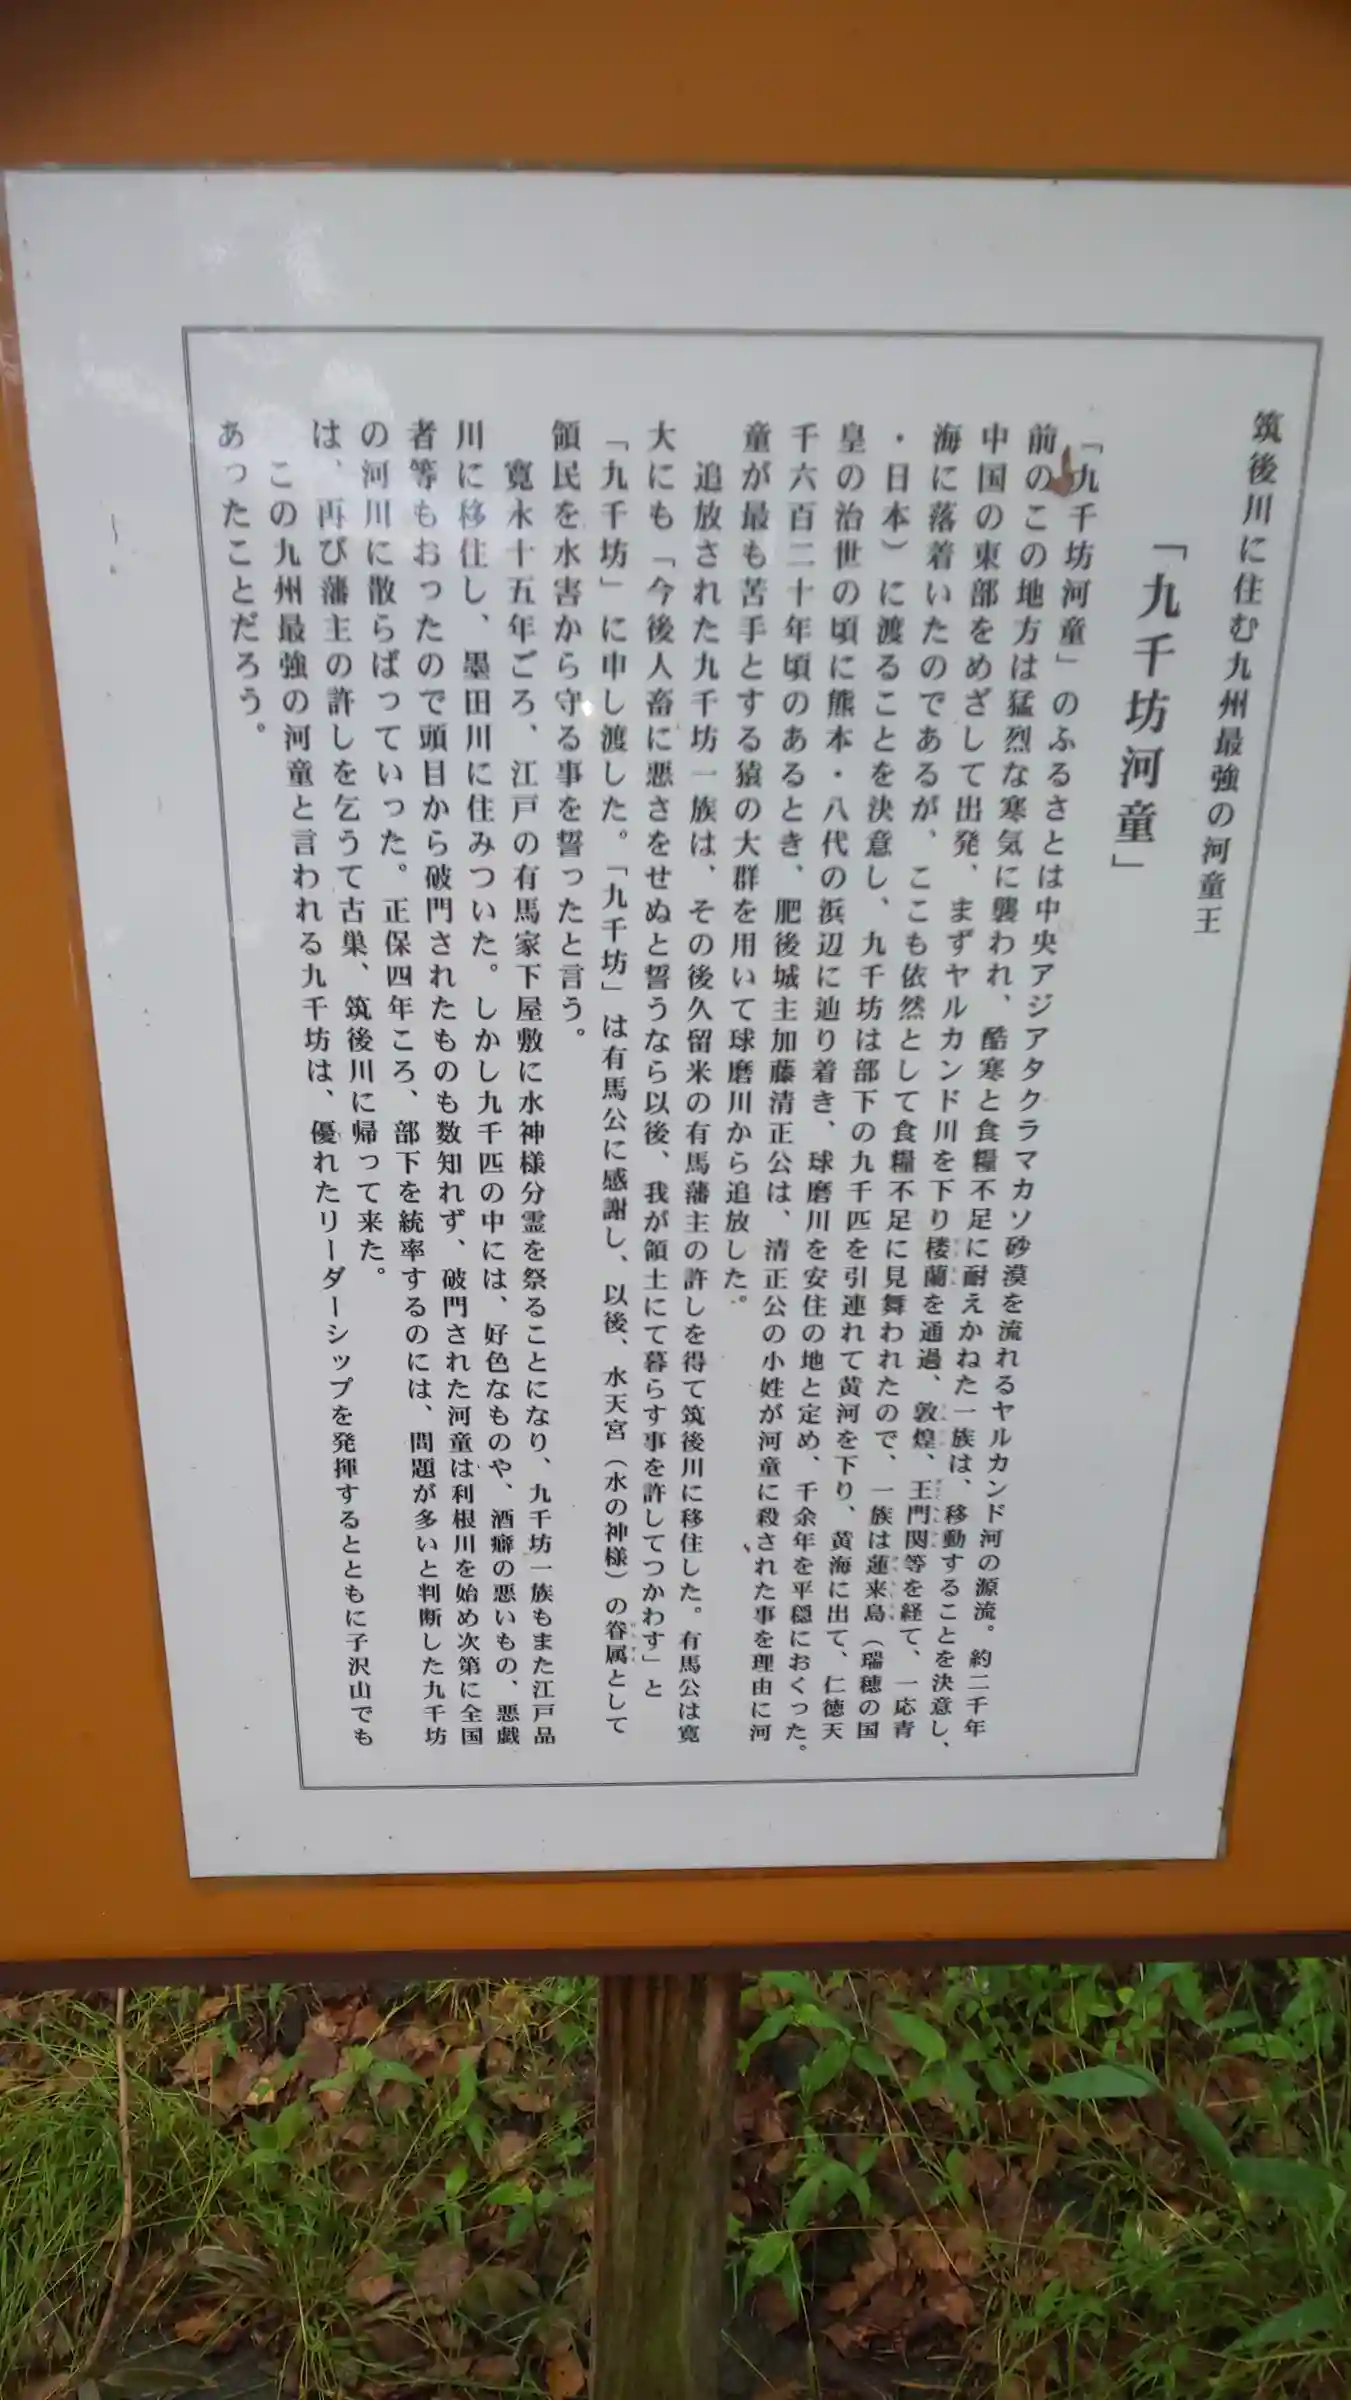 筑後川に住む九州最強の河童王
「九千坊河童」
「九千坊河童」のふるさとは中央アジアタクラマカソ砂漠を流れるヤルカンド河の源流。約二千年
前のこの地方は猛烈な寒気に襲われ、酷寒と食糧不足に耐えかねた一族は、移動することを決意し、
中国の東部をめざして出発、まずヤルカンド川を下り楼蘭を通過、敦煌、王門関等を経て、一応青
海に落着いたのであるが、ここも依然として食糧不足に見舞われたので、一族は蓮来島（瑞穂の国
・日本）に渡ることを決意し、九千坊は部下の九千匹を引連れて黄河を下り、黄海に出て、仁徳天
皇の治世の頃に熊本・八代の浜辺に辿り着き、球磨川を安住の地と定め、千余年を平穏におくった。
千六百二十年頃のあるとき、肥後城主加藤清正公は、清正公の小姓が河童に殺された事を理由に河
童が最も苦手とする猿の大群を用いて球磨川から追放した。
追放された九千坊一族は、その後久留米の有馬藩主の許しを得て筑後川に移住した。有馬公は寛
大にも「今後人畜に悪さをせぬと誓うなら以後、我が領土にて暮らす事を許してつかわす」と
「九千坊」に申し渡した。「九千坊」は有馬公に感謝し、以後、水天宮（水の神様）の眷属として
領民を水害から守る事を誓ったと言う。
寛永十五年ごろ、江戸の有馬家下屋敷に水神様分霊を祭ることになり、九千坊一族もまた江戸品
川に移住し、墨田川に住みついた。しかし九千匹の中には、好色なものや、酒癖の悪いもの、悪戯
者等もおったので頭目から破門されたものも数知れず、破門された河童は利根川を始め次第に全国
の河川に散らばっていった。正保四年ころ、部下を統率するのには、問題が多いと判断した九千坊
は、再び藩主の許しを乞うて古巣、筑後川に帰って来た。
この九州最強の河童と言われる九千坊は、優れたリーダーシップを発揮するとともに子沢山でも
あったことだろう。